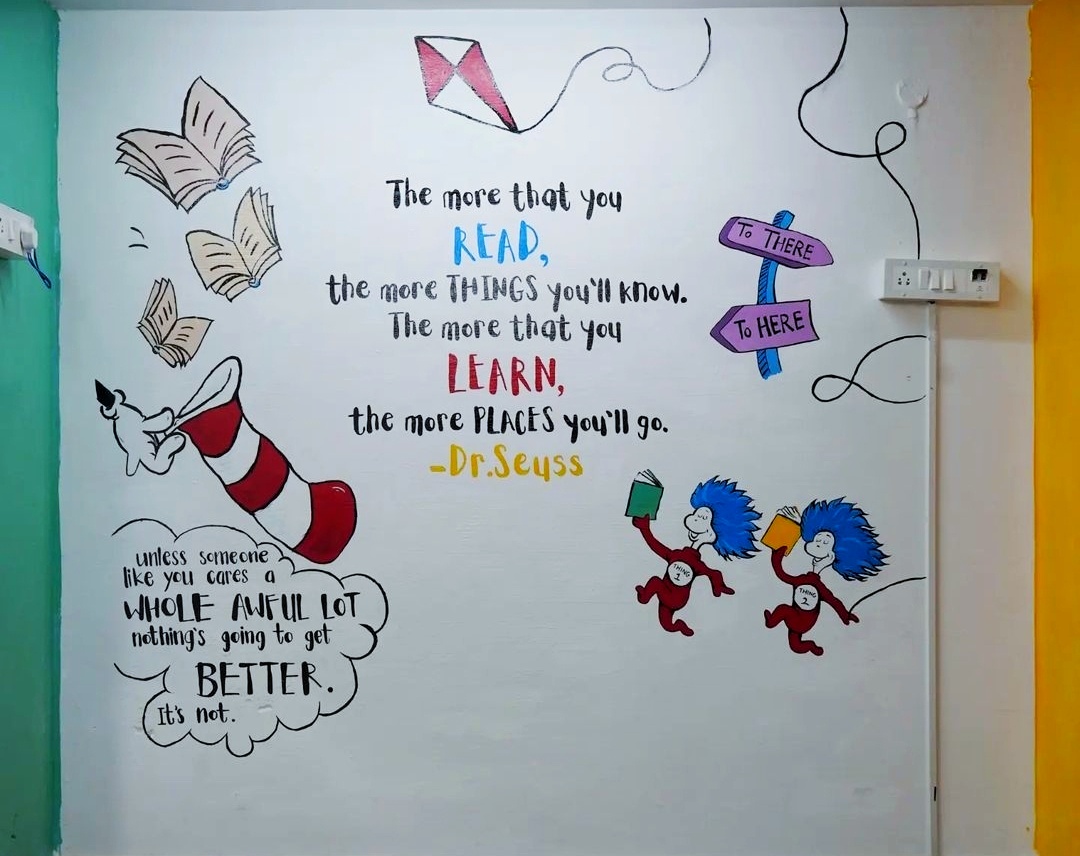 The more that you
READ,
the more THINGS you'll know.
The more that you
LEARN,
the more PLACES you'll go.
-Dr.Seuss
To THERE
To HERE
THING
1
THING
2
unless someone
like you cares a
WHOLE AWFUL LOT
nothing's going to get
BETTER.
It's not.